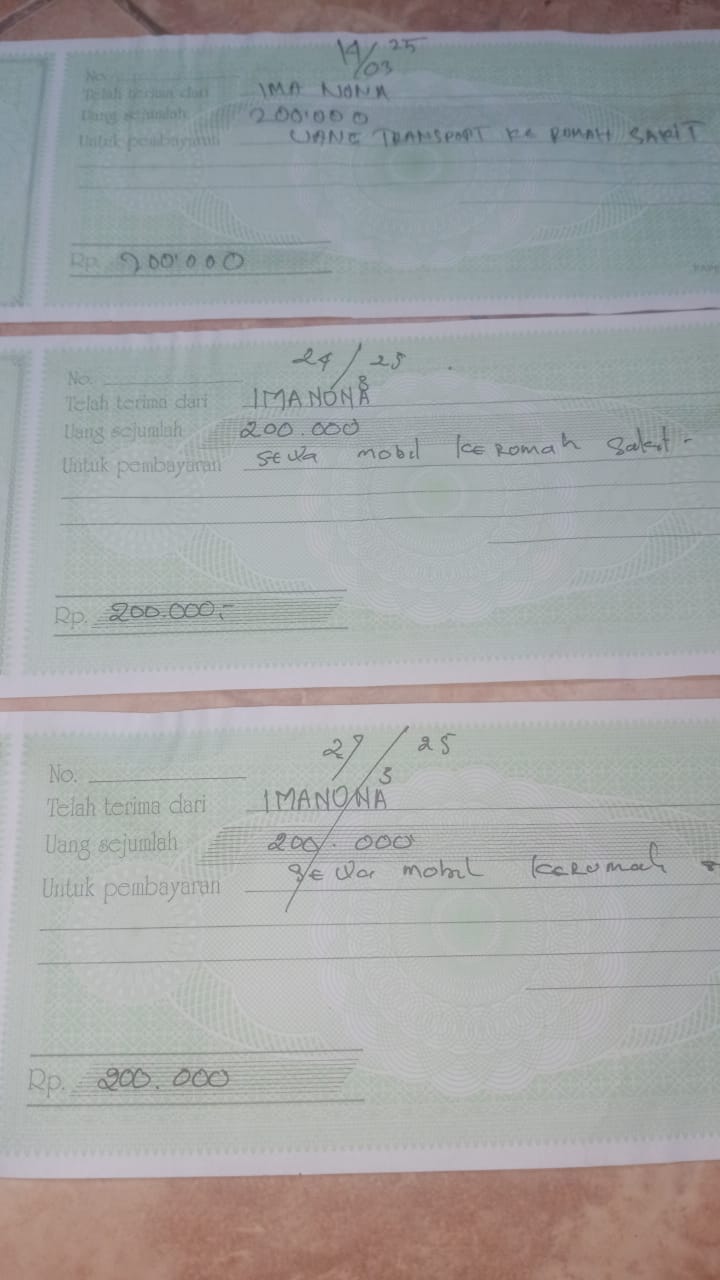 14/03 25
No.
Telah terima dari IMA NONA
Uang sejumlah 200.000
Untuk pembayaran UANG TRANSPORT KE ROMAH SAKIT
Rp. 200.000
24/ 25
No.
Telah terima dari IMANONA
Uang sejumlah 200.000
Untuk pembayaran SEWa mobil KE ROMah Sakit -
Rp. 200.000,-
29/3 25
No.
Telah terima dari IMANONA
Uang sejumlah 200.000
Untuk pembayaran SEWa mobil KeRUMah
Rp. 200.000